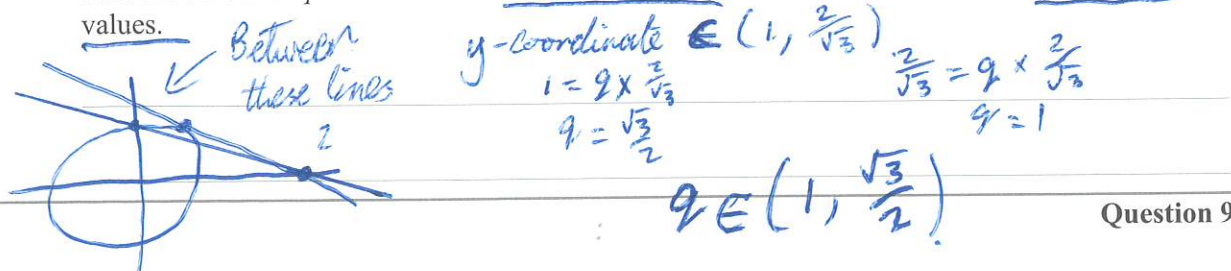 values.
Between
these lines
2
y-coordinate ∈ (1, 2/√3)
1 = q × 2/√3
q = √3/2
2/√3 = q × 2/√3
q = 1
q ∈ (1, √3/2).
Question 9